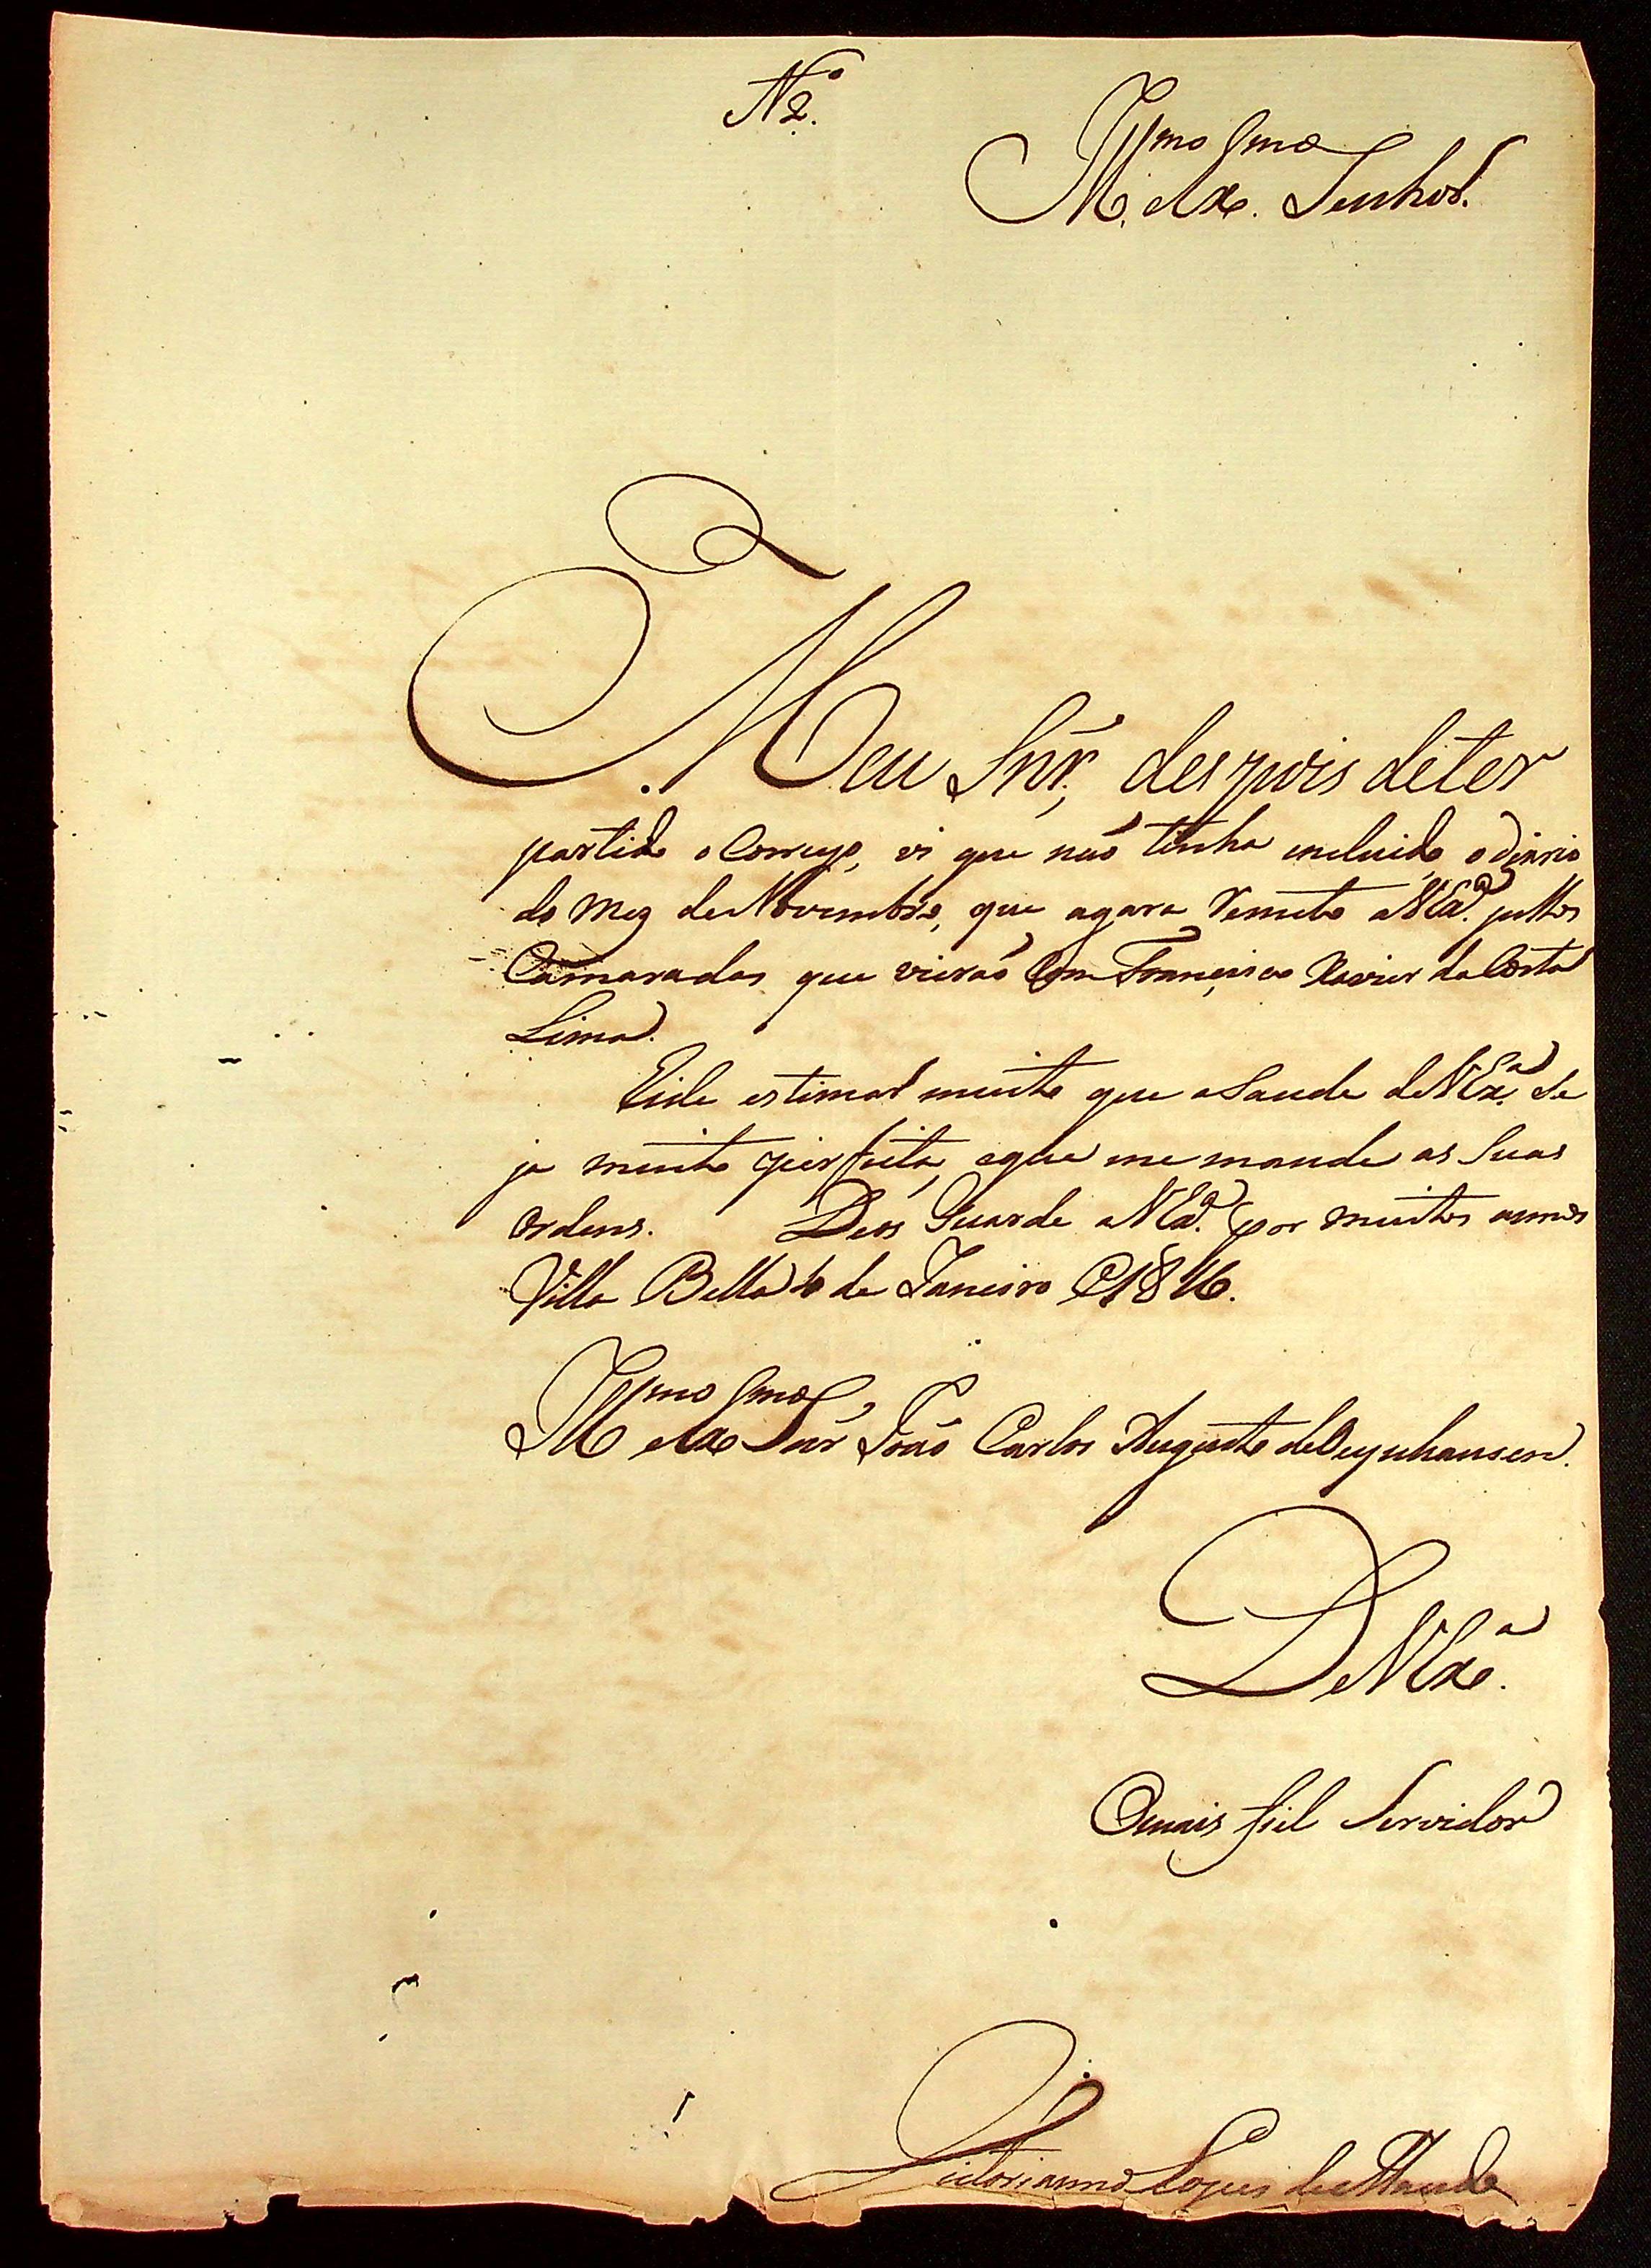 N.º 2.
Ill.mo Ex.mo Senhor.
Meu Snr̃; despois deter
partido o Correyo, vi que naõ tinha incluido o Diario
do mez de Novembro, que agora remeto a V Ex.ª pellos
Camaradas que vieraõ Com Francisco Xavier da Costa
Lima.
Eide estimar muito que a Saude de V Ex.ª Se
ja muito perfeita, eque me mande as Suas
Ordens. Deos Guarde a V Ex.ª por muitos annos
Villa Bella de Janeiro 1816.
Ill.mo Ex.mo Snr̃ Joaõ Carlos Augusto de Oeynhausen.
De V Ex.ª
Omais fiel Servidor
Victorianno Lopes de